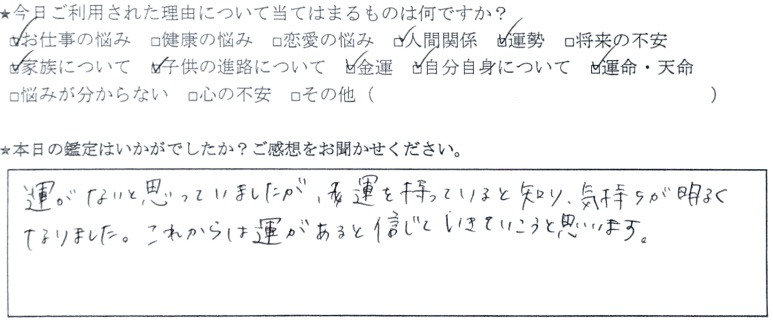 ★今日ご利用された理由について当てはまるものは何ですか？
☑お仕事の悩み □健康の悩み □恋愛の悩み ☑人間関係 ☑運勢 □将来の不安
☑家族について ☑子供の進路について ☑金運 ☑自分自身について ☑運命・天命
□悩みが分からない □心の不安 □その他（ ）
★本日の鑑定はいかがでしたか？ご感想をお聞かせください。
運がないと思っていましたが、運を持っていると知り、気持ちが明るく
なりました。これからは運があると信じていきていこうと思います。